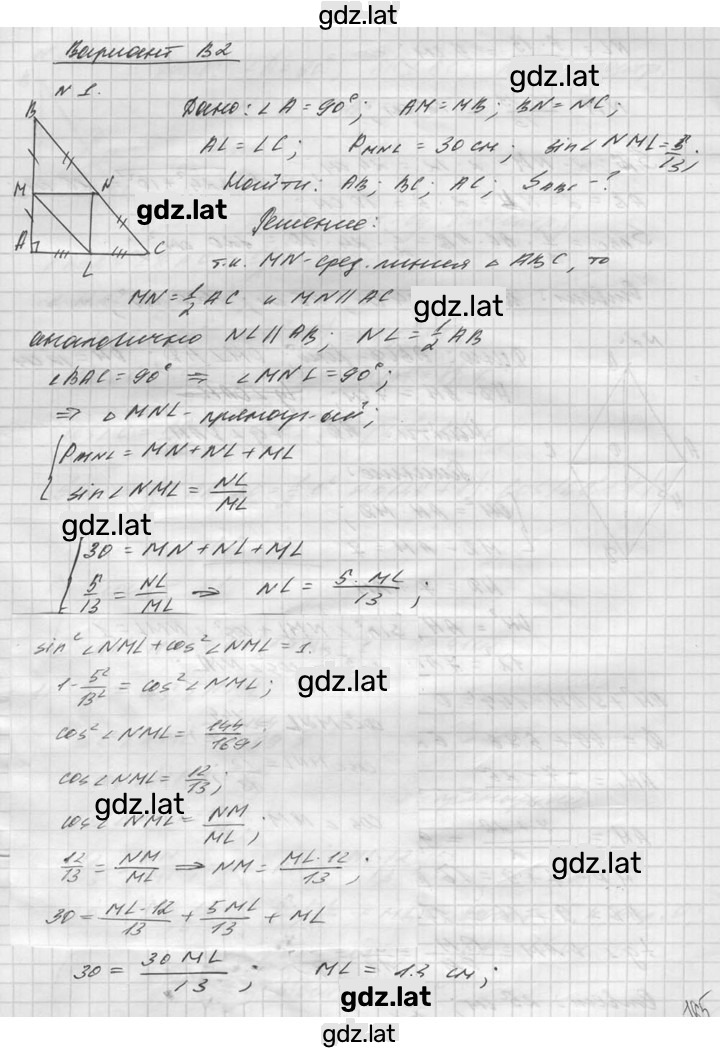 gdz.lat
Вариант В2
gdz.lat
N 1.
Дано: ∠A = 90°; AM = MB; BN = NC;
AL = LC; PMNL = 30 см; sin∠NML = 5/13;
Найти: AB; BC; AC; SABC - ?
gdz.lat
Решение:
B
M N
A L C
т.к. MN - сред. линия △ ABC, то
MN = 1/2 AC и MN || AC
gdz.lat
аналогично NL || AB; NL = 1/2 AB
∠BAC = 90° ⇒ ∠MNL = 90°;
⇒ △ MNL - прямоуг-ый;
PMNL = MN + NL + ML
sin∠NML = NL/ML
gdz.lat
30 = MN + NL + ML
5/13 = NL/ML ⇒ NL = 5·ML/13;
sin²∠NML + cos²∠NML = 1.
1 - 5²/13² = cos²∠NML;
gdz.lat
cos²∠NML = 144/169;
cos∠NML = 12/13;
gdz.lat
cos∠NML = NM/ML;
12/13 = NM/ML ⇒ NM = ML·12/13;
gdz.lat
30 = ML·12/13 + 5ML/13 + ML
30 = 30 ML/13; ML = 13 см;
gdz.lat
165
gdz.lat